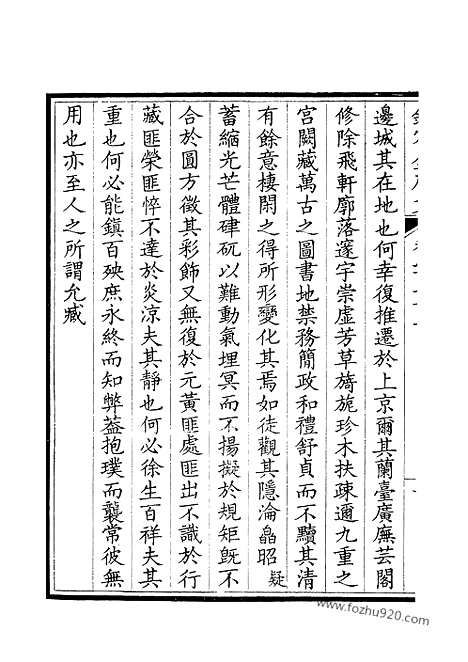 邊城其在地也何幸復推遷於上京爾其蘭臺廣廡芸閣
修除飛軒廓落邃宇崇虛芳草旖旎珍木扶疎邇九重之
宮闕藏萬古之圖書地禁務簡政和禮舒貞而不黷其清
有餘意棲閑之得所形變化其焉如徒觀其隱淪晶昭疑
蓄縮光芒體硉矹以難動氣埋冥而不揚擬於規矩旣不
合於圓方徵其彩飾又無復於元黃匪處匪出不識於行
藏匪榮匪悴不達於炎涼夫其靜也何必徐生百祥夫其
重也何必能鎮百殃庶永終而知弊葢抱璞而襲常彼無
用也亦至人之所謂允臧
www.fozhu920.com